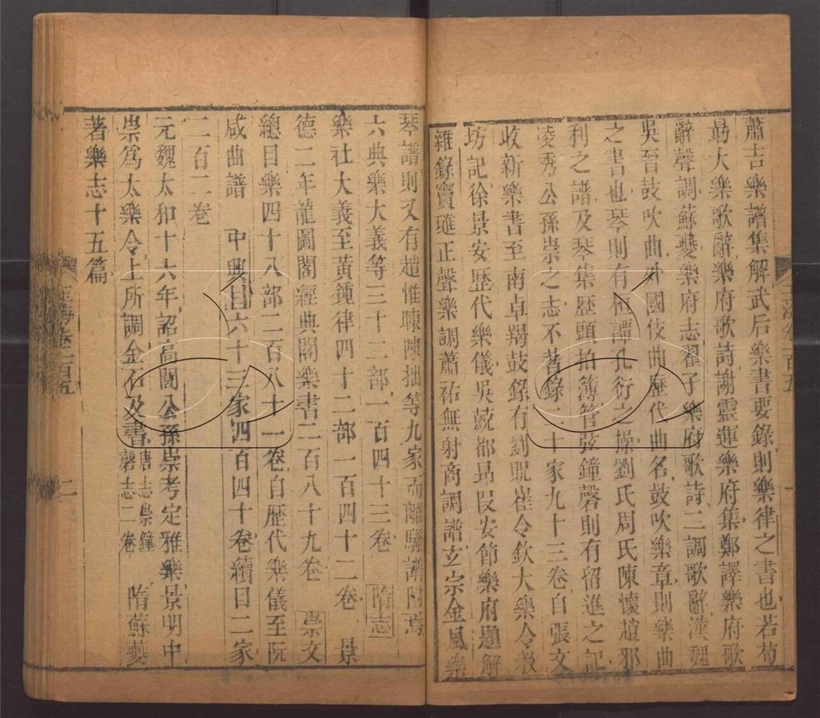 蕭吉樂譜集解武后樂書要錄則樂律之書也若荀
勗大樂歌辭樂府歌詩謝靈運樂府集鄭譯樂府歌
辭聲調蘇夔樂府志翟子樂府歌詩三調歌辭漢魏
吳晉鼓吹曲外國伎曲歷代曲名鼓吹樂章則樂曲
之書也琴則有桓譚孔衍之操劉氏周氏陳懷趙邪
利之譜及琴集歷頭拍簿管弦鐘磬則有留進之記
凌秀公孫崇之志不著錄二十家九十三卷自張文
收新樂書至南卓羯鼓錄有劉貺崔令欽大樂令教
坊記徐景安歷代樂儀吳兢郗昂段安節樂府題解
雜錄竇璡正聲樂調蕭祐無射商調譜玄宗金風樂
琴譜則又有趙惟暕陳拙等九家而離騷譜附焉
六典樂大義等三十二部一百四十三卷 隋志
樂社大義至黃鍾律四十二部一百四十二卷 景
德二年龍圖閣經典閣樂書二百八十九卷 崇文
總目樂四十八部二百八十一卷自歷代樂儀至阮
咸曲譜 中興目六十三家四百四十卷續目二家
二百二卷
元魏太和十六年詔高閭公孫崇考定雅樂景明中
崇爲太樂令上所調金石及書唐志崇鐘磬志二卷 隋蘇夔
著樂志十五篇
玉海卷一百五
二